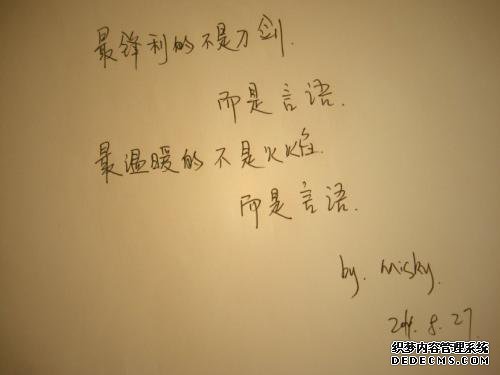 最锋利的不是刀剑.
而是言语.
最温暖的不是火焰.
而是言语.
by. Misky.
8.27
织梦内容管理系统
DEDECMS.COM